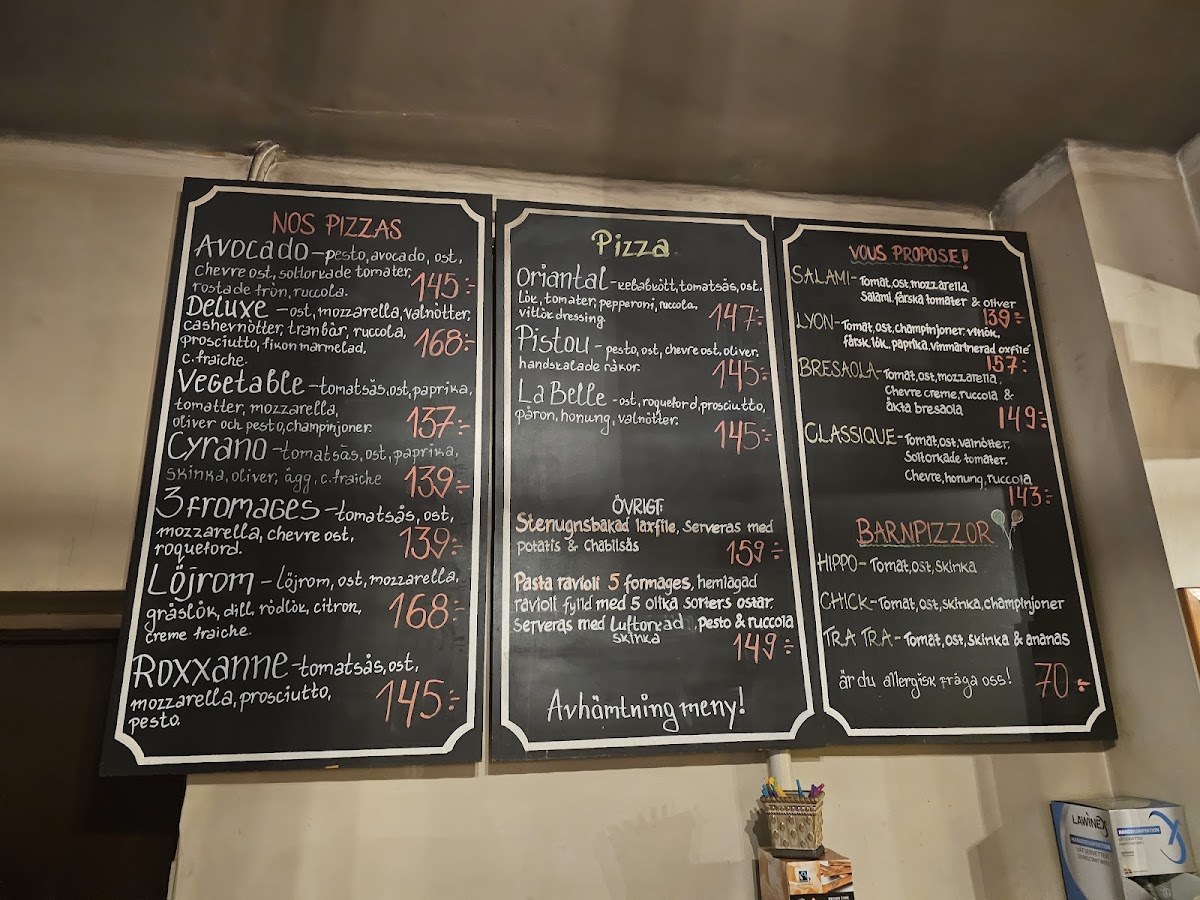 NOS PIZZAS
Avocado - pesto, avocado, ost,
chevre ost, soltorkade tomater,
rostade frön, ruccola. 145:-
Deluxe - ost, mozzarella, valnötter,
cashewnötter, tranbär, ruccola,
prosciutto, fikon marmelad, 168:-
c. fraiche.
Vegetable - tomatsås, ost, paprika,
tomatter, mozzarella,
oliver och pesto, champinjoner. 137:-
Cyrano - tomatsås, ost, paprika,
skinka, oliver, ägg, c. fraiche 139:-
3 fromages - tomatsås, ost,
mozzarella, chevre ost, 139:-
roqueford.
Löjrom - löjrom, ost, mozzarella,
gräslök, dill, rödlök, citron, 168:-
creme fraiche.
Roxxanne - tomatsås, ost,
mozzarella, prosciutto, 145:-
pesto.
Pizza
Oriantal - kebabkött, tomatsås, ost,
lök, tomater, pepperoni, ruccola.
vitlök dressing 147:-
Pistou - pesto, ost, chevre ost, oliver.
handskalade räkor. 145:-
La Belle - ost, roqueford, prosciutto,
päron, honung, valnötter. 145:-
ÖVRIGT:
Stenugnsbakad laxfile, Serveras med
potatis & Chablisås 159:-
Pasta ravioli 5 formages, hemlagad
ravioli fylld med 5 olika sorters ostar.
Serveras med Luftorkad, pesto & ruccola
skinka 149:-
Avhämtning meny!
VOUS PROPOSE!
SALAMI - Tomat, ost, mozzarella,
Salami, färska tomater & oliver
139:-
LYON - Tomat, ost, champinjoner, vitlök,
färsk lök, paprika, vinmarinerad oxfilé
157:-
BRESAOLA - Tomat, ost, mozzarella,
Chevre creme, ruccola &
äkta bresaola 149:-
CLASSIQUE - Tomat, ost, valnötter,
Soltorkade tomater,
Chevre, honung, ruccola
143:-
BARNPIZZOR
HIPPO - Tomat, ost, skinka
CHICK - Tomat, ost, skinka, champinjoner
TRA TRA - Tomat, ost, skinka & ananas
är du allergisk fråga oss! 70:-
LAWINEX